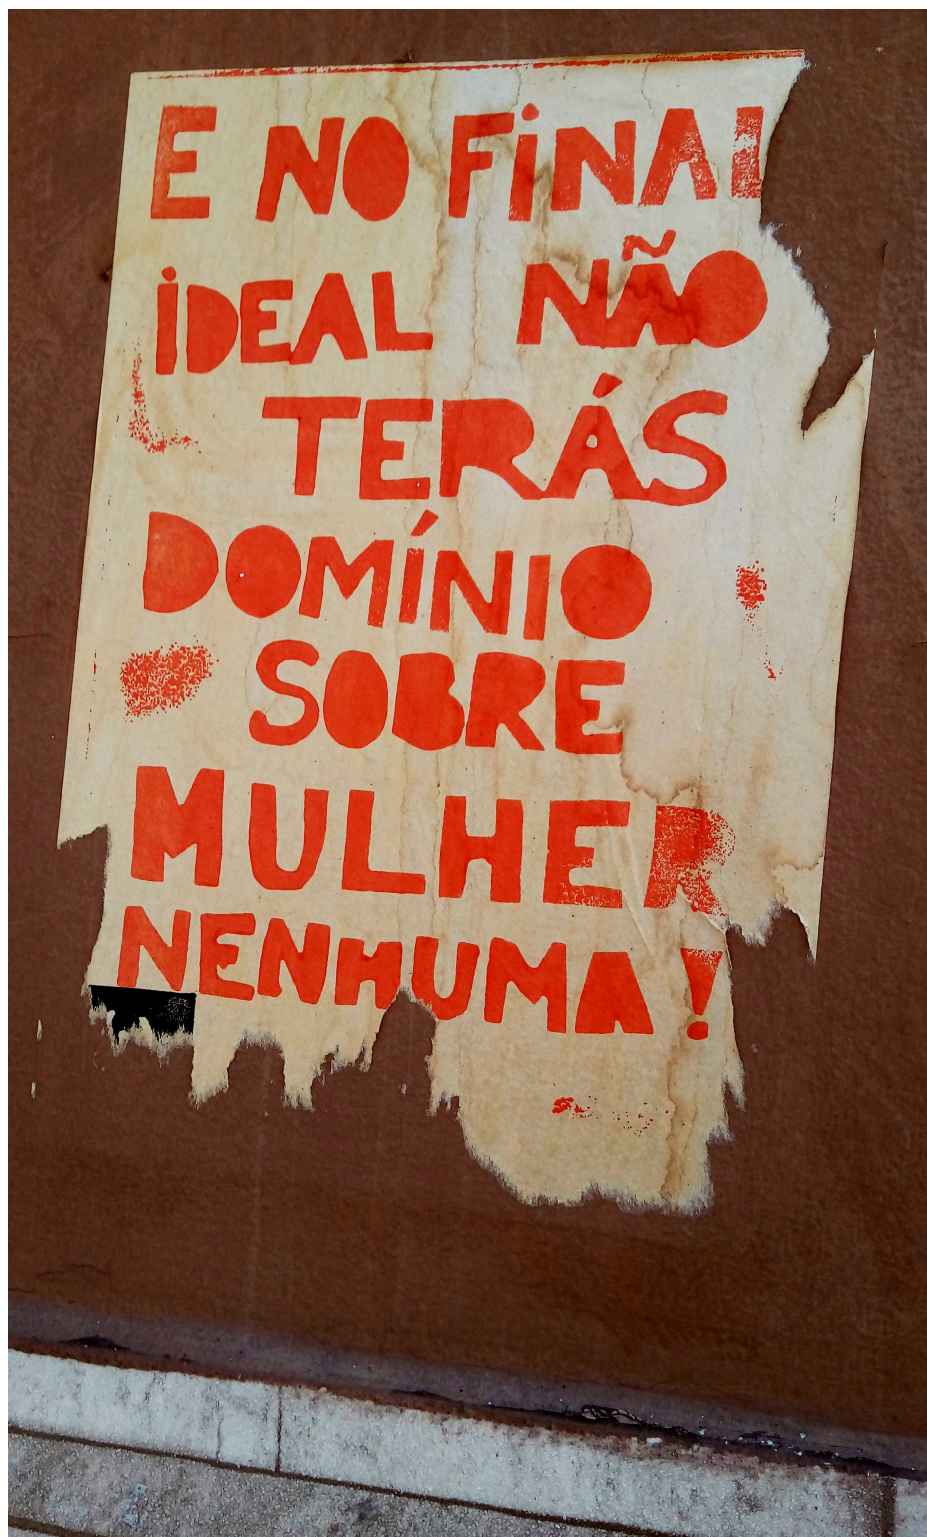 E NO FiNAL
iDEAL NÃO
TERÁS
DOMÍNIO
SOBRE
MULHER
NENHUMA!